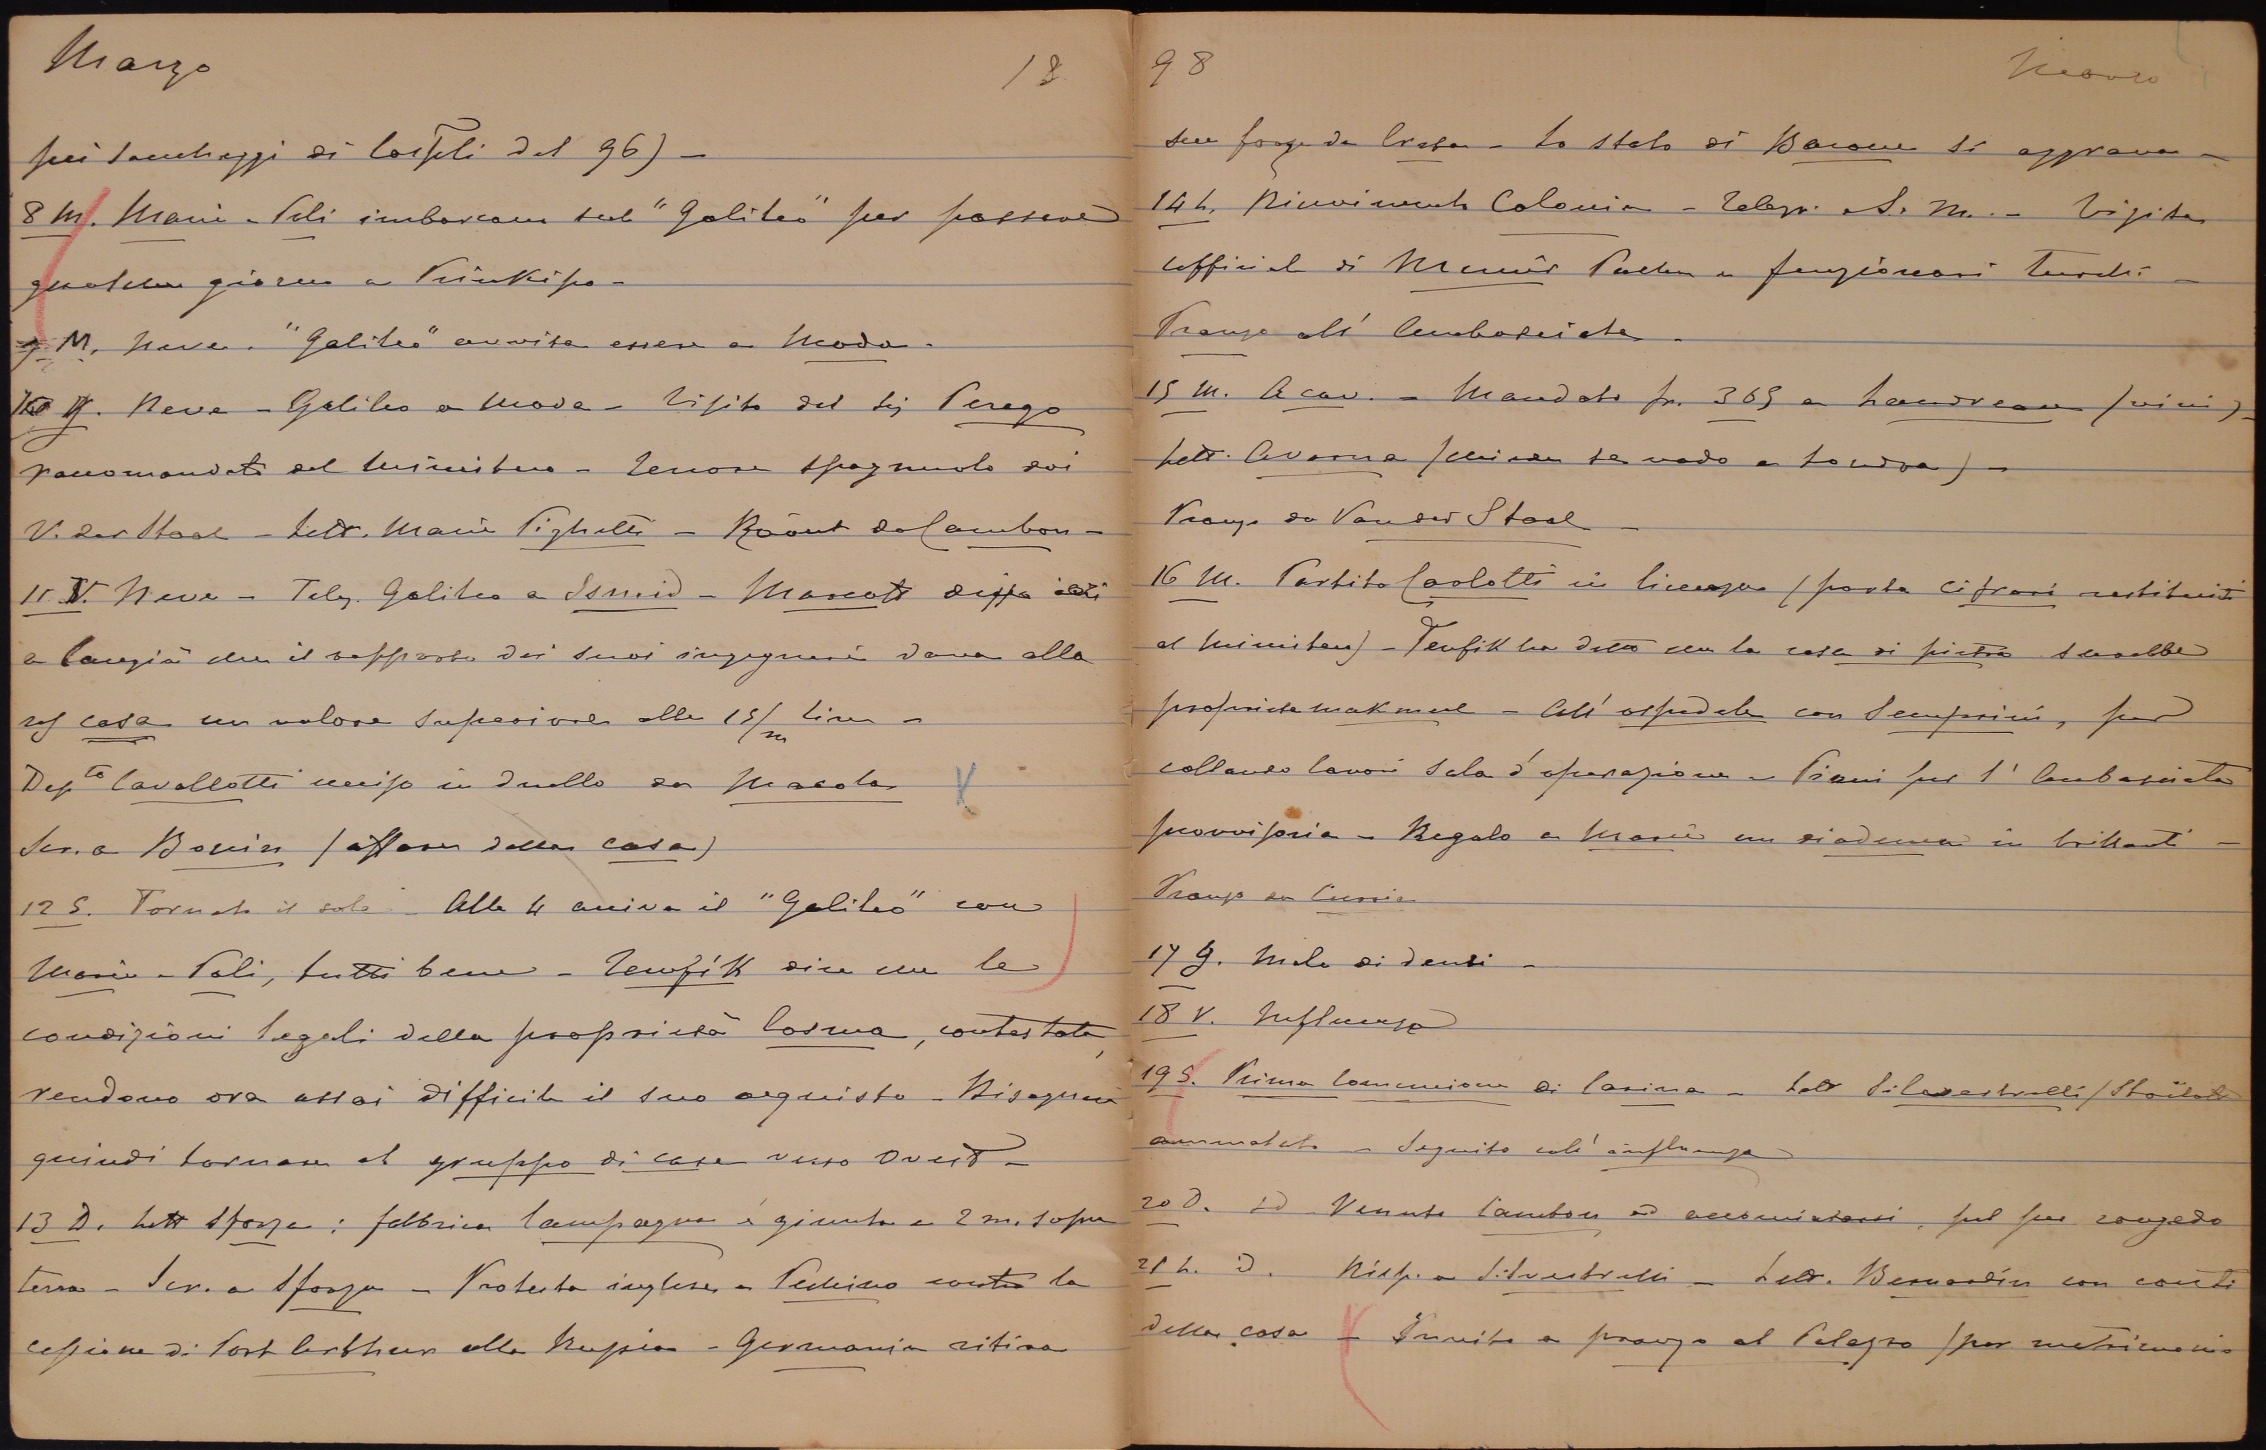 Marzo 18
pei saccheggi di Costpli del 96) -
8 M. Marie e Poli imbarcano sul "Galileo" per passare
qualche giorno a Prinkipo -
9 M. Neve. "Galileo" avvisa essere a Moda -
10 G. Neve - Galileo a Moda - Visita del Sig Perego
raccomandato dal Ministero - Tenore spagnuolo dai
V. der Staal - Lett. Marie Pighetti - Raout da Cambon -
11 V. Neve - Teleg. Galileo a Ismid - Mascot disse ieri
a Cangià che il rapporto dei suoi ingegneri dava alla
casa un valore superiore alle 15/m lire -
Depto Cavallotti ucciso in duello da Macola
Scr. a Bonin (affare della casa)
12 S. Tornato il sole - Alle 4 arriva il "Galileo" con
Marie e Poli, tutti bene - Tewfik dice che le
condizioni legali della proprietà Cosma, contestata,
rendono ora assai difficile il suo acquisto - Bisogna
quindi tornare al gruppo di case verso Ovest -
13 D. Lett Sforza: fabbrica Campagna è giunta a 2 m. sopra
terra - Scr. a Sforza - Protesta inglese a Pechino contro la
cessione di Port Arthur alla Russia - Germania ritira
98 Marzo
sue forze da Creta - Lo stato di Bacone si aggrava -
14 L. Ricevimento Colonia - Telegr. a S. M. - Visita
ufficiale di Munir Pacha e funzionari turchi -
Pranzo all'Ambasciata -
15 M. A cav. - Mandato fr. 365 a Landreau (vini) -
Lett. Avarna (chiede se vado a Londra) -
Pranzo da Van der Staal -
16 M. Partito Carlotti in licenza (porta cifrari restituiti
al Ministero) - Tewfik ha detto che la casa di pietra sarebbe
proprietà - All'ospedale con Semprini, per
collaudo lavori sala d'operazione - Piani per l'Ambasciata
provvisoria - Regalo a Marie un diadema in brillanti -
Pranzo da
17 G. Male di denti -
18 V. Influenza
19 S. Prima Comunione di Carina - Lett Silvestrelli
ammalato - Seguito coll'influenza
20 D. id - Venuto Cambon ad accomiatarsi, pel suo congedo
21 L. id. Risp. a Silvestrelli - Lett. Bernardin con conti
della casa - Invito a pranzo al Palazzo (per matrimonio